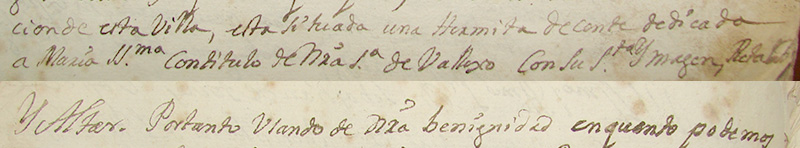 cion de esta Villa, esta situada una Hermita decente dedicada
a Maria SS.ma Contitulo de Nra S.a de Vallexo Con su S.ta Ymagen, Reta
Y Altar. Portanto Usando de Nra benignidad enquanto podemos